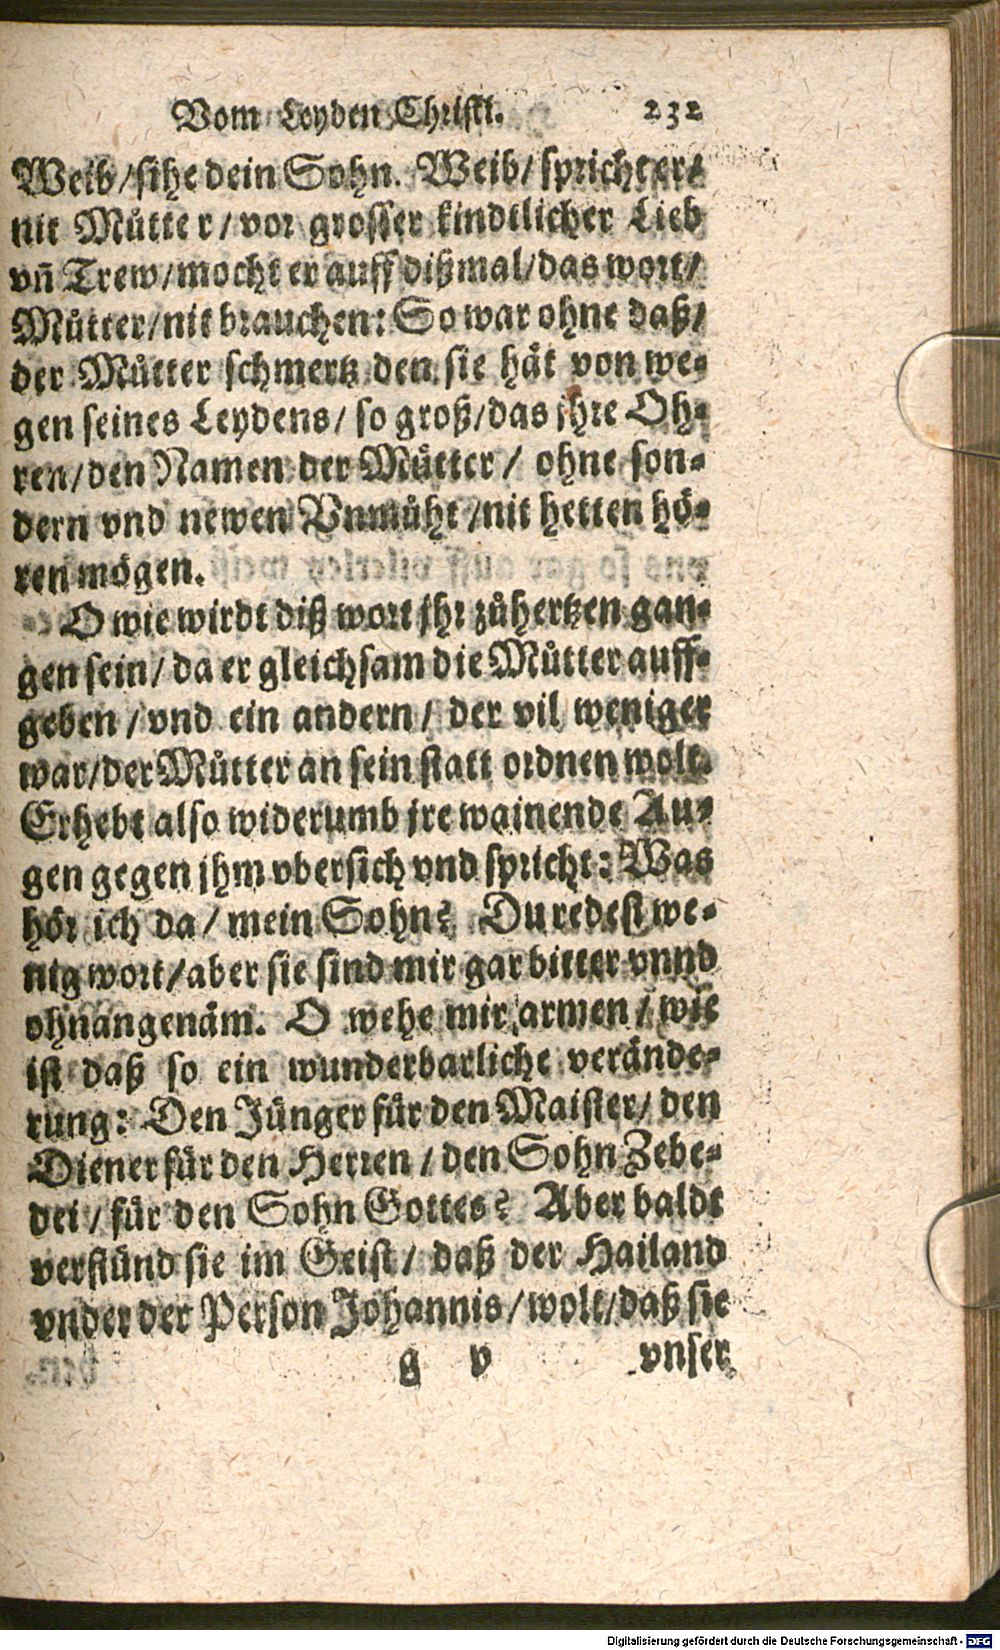 Vom Leyden Christi. 232
Weib/sihe dein Sohn. Weib/spricht er/
nit Můtter/vor grosser kindtlicher Lieb
vñ Trew/mocht er auff dißmal/das wort/
Můtter/nit brauchen: So war ohne daß/
der Můtter schmertz den sie hät von we-
gen seines Leydens/ so groß/das jhre Oh-
ren/den Namen der Můtter/ ohne son-
dern vnd newen Vnmůht/nit hetten hö-
ren mögen.
O wie wirdt diß wort jhr zůhertzen gan-
gen sein/ da er gleichsam die Můtter auff-
geben/vnd ein andern/ der vil weniger
war/der Můtter an sein statt ordnen wolt.
Erhebt also widerumb jre wainende Au-
gen gegen jhm vbersich vnd spricht: Was
hör ich da/ mein Sohn? Du redest we-
nig wort/aber sie sind mir gar bitter vnnd
ohnangenäm. O wehe mir armen/ wie
ist daß so ein wunderbarliche verände-
rung: Den Jünger für den Maister/ den
Diener für den Herren/den Sohn Zebe-
dei/für den Sohn Gottes? Aber baldt
verstünd sie im Geist/ daß der Hailand
vnder der Person Johannis/wolt/daß sie
g v vnser
Digitalisierung gefördert durch die Deutsche Forschungsgemeinschaft - DFG